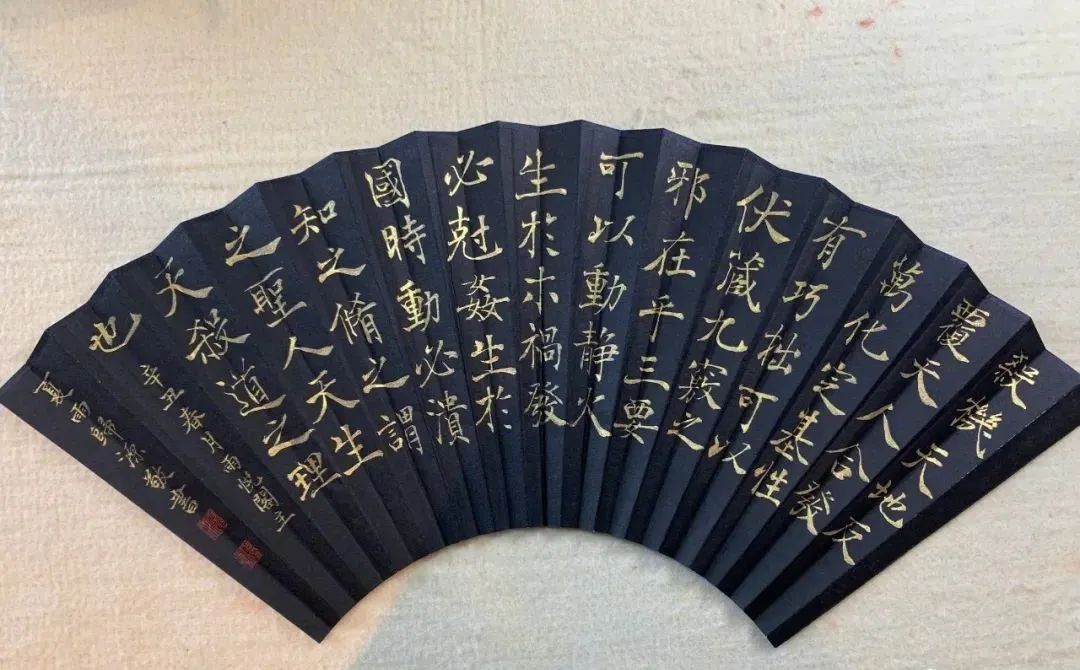 殺機天地反
覆天人合發
萬化定基性
有巧拙可以
伏藏九竅之
邪在乎三要
可以動靜火
生於木禍發
必尅姦生於
國時動必潰
知之脩之謂
之聖人天生
天殺道之理
也
辛丑春月雨悦閣主
夏雨歸源敬書